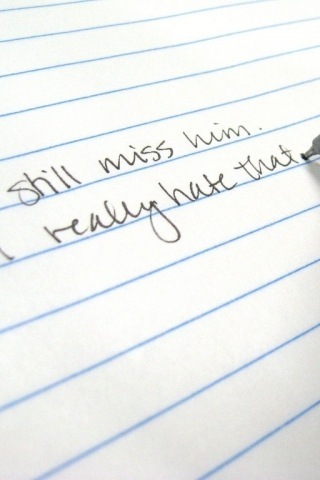 still miss him.
I really hate that